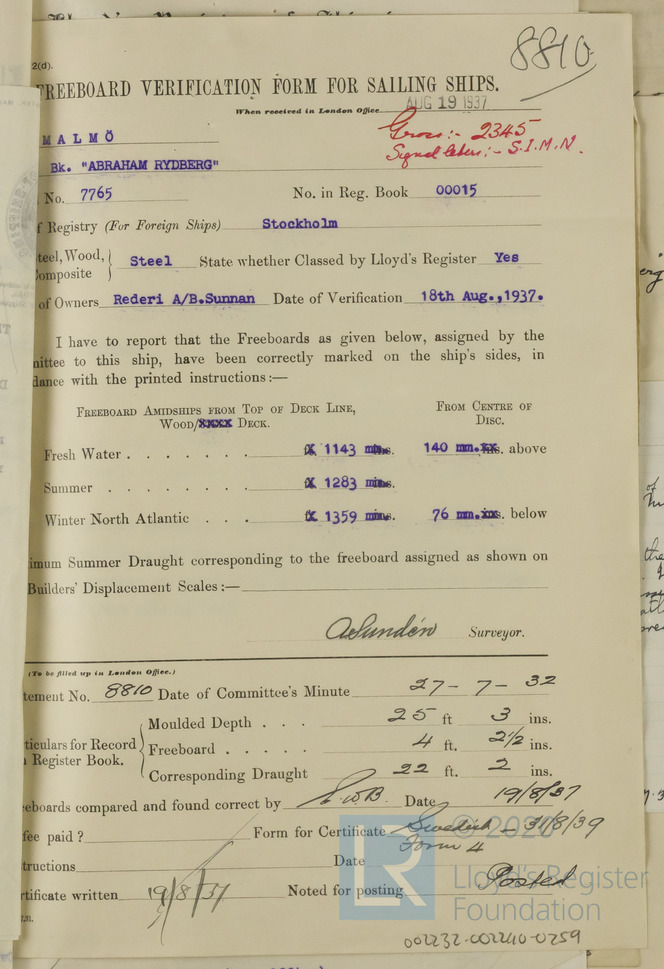 8810
2(d).
FREEBOARD VERIFICATION FORM FOR SAILING SHIPS.
When received in London Office AUG 19 1937
Gross:- 2345
Signal letters:- S.I.M.N.
MALMÖ
Bk. "ABRAHAM RYDBERG"
No. 7765 No. in Reg. Book 00015
f Registry (For Foreign Ships) Stockholm
teel, Wood, omposite } Steel State whether Classed by Lloyd's Register Yes
of Owners Rederi A/B.Sunnan Date of Verification 18th Aug.,1937.
I have to report that the Freeboards as given below, assigned by the
mittee to this ship, have been correctly marked on the ship's sides, in
dance with the printed instructions:—
FREEBOARD AMIDSHIPS FROM TOP OF DECK LINE, FROM CENTRE OF
WOOD/XXXX DECK. DISC.
Fresh Water . . . . . . . X 1143 mms. 140 mm.xxs. above
Summer . . . . . . . . X 1283 mms.
Winter North Atlantic . . . X 1359 mms. 76 mm.xxs. below
imum Summer Draught corresponding to the freeboard assigned as shown on
Builders' Displacement Scales:—
ASundén Surveyor.
(To be filled up in London Office.)
tement No. 8810 Date of Committee's Minute 27-7-32
Moulded Depth . . . 25 ft 3 ins.
ticulars for Record Register Book. { Freeboard . . . . . 4 ft. 2½ ins.
Corresponding Draught 22 ft. 2 ins.
eboards compared and found correct by Date 19/8/37
fee paid ? Form for Certificate Swedish - 31/8/39
Form 4
tructions Date
rtificate written 19/8/37 Noted for posting Posted
LR
© 2020
Lloyd's Register
Foundation
002232-002240-0259